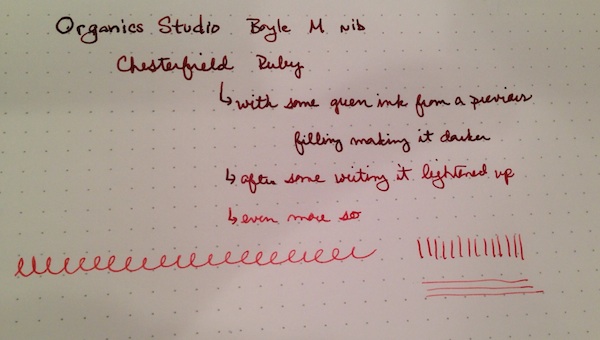 Organics Studio Boyle M nib
Chesterfield Ruby
↳ with some green ink from a previous
filling making it darker
↳ after some writing it lightened up
↳ even more so